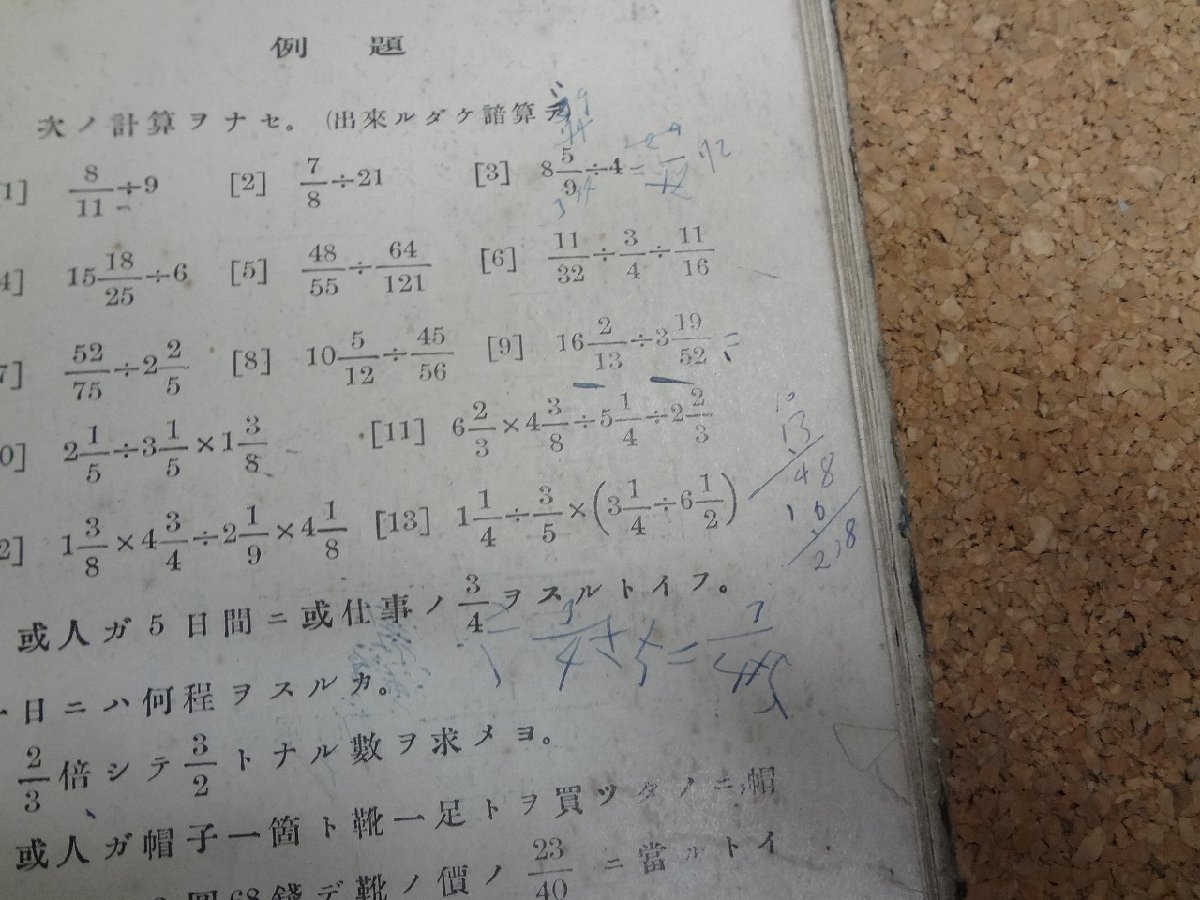 例 題
次ノ計算ヲナセ。(出來ルダケ諳算
1] 8/11÷9 [2] 7/8÷21 [3] 8 5/9÷4
4] 15 18/25÷6 [5] 48/55÷64/121 [6] 11/32÷3/4÷11/16
7] 52/75÷2 2/5 [8] 10 5/12÷45/56 [9] 16 2/13÷3 19/52 =
0] 2 1/5÷3 1/5×1 3/8 [11] 6 2/3×4 3/8÷5 1/4÷2 2/3
2] 1 3/8×4 3/4÷2 1/9×4 1/8 [13] 1 1/4÷3/5×(3 1/4÷6 1/2)
或人ガ5日間ニ或仕事ノ3/4ヲスルトイフ。
一日ニハ何程ヲスルカ。
2/3倍シテ3/2トナル數ヲ求メヨ。
或人ガ帽子一箇ト靴一足トヲ買ツタノニ帽
圓68錢デ靴ノ價ノ23/40ニ當ルトイ